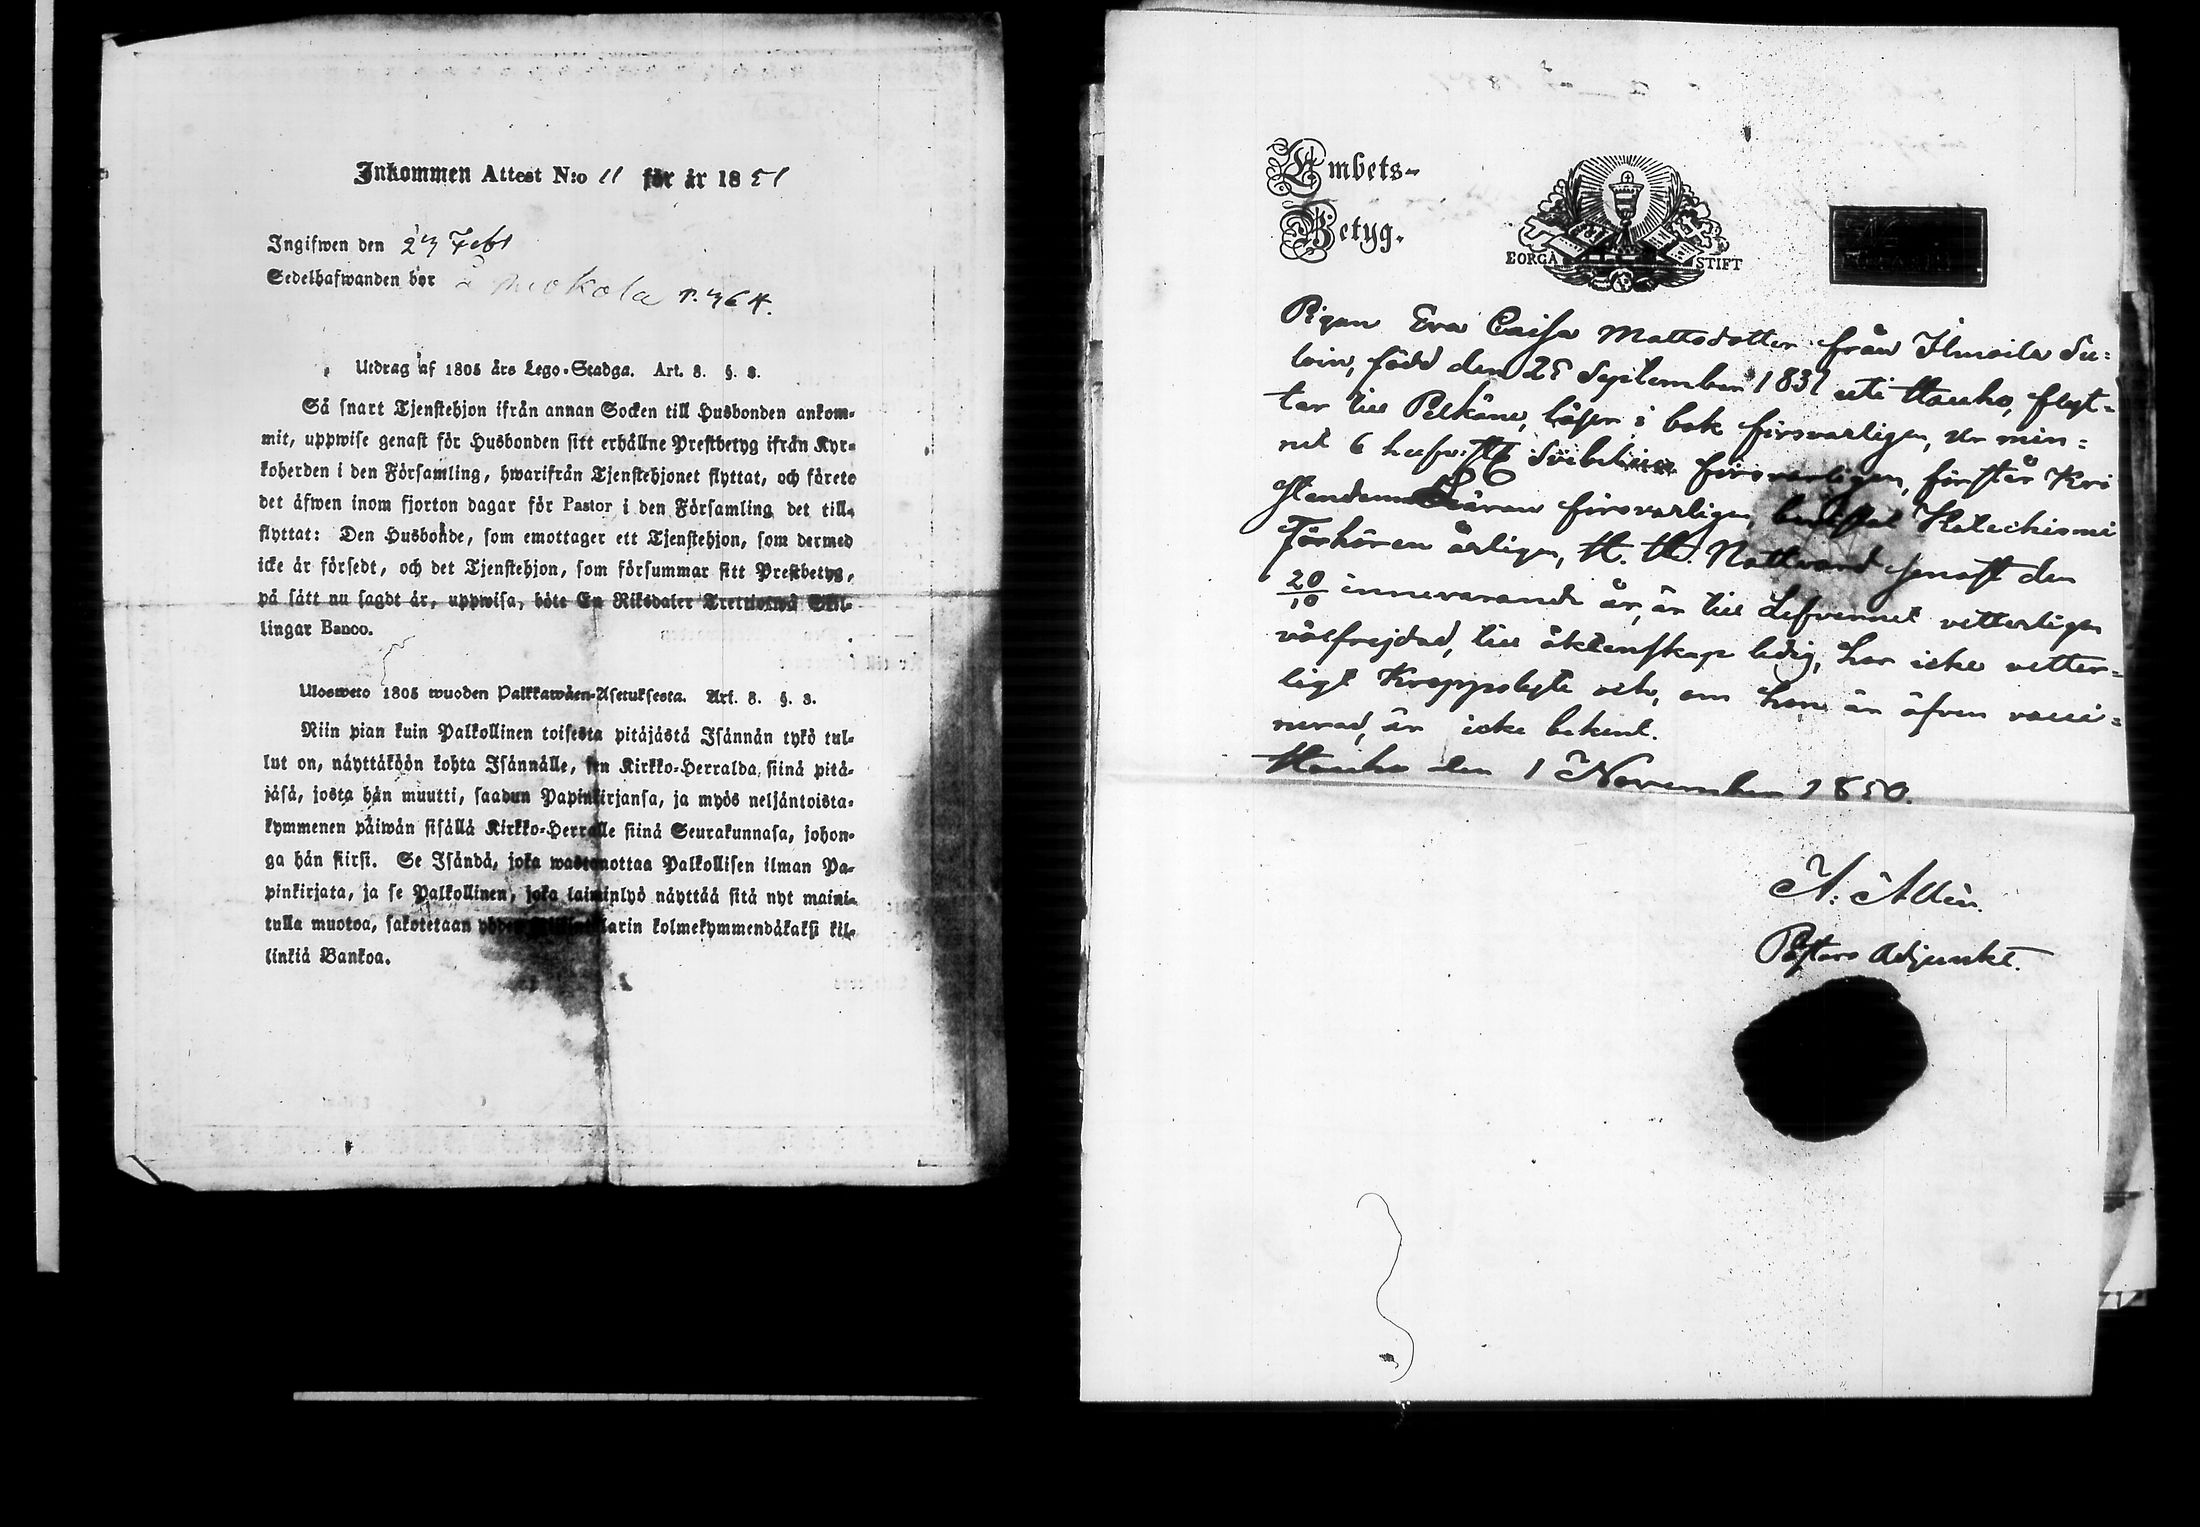 Inkommen Attest N:o 11 för år 1851
Ingifwen den 27 Febr
Sedelhafwanden bor å
Utdrag af 1805 års Lego-Stadga. Art. 8. §. 3.
Så snart Tjenstehjon ifrån annan Socken till Husbonden ankom-
mit, uppwise genast för Husbonden sitt erhållne Prestbetyg ifrån Kyr-
koherden i den Församling, hwarifrån Tjenstehjonet flyttat, och förete
det äfwen inom fjorton dagar för Pastor i den Församling det till-
flyttat: Den Husbonde, som emottager ett Tjenstehjon, som dermed
icke är försedt, och det Tjenstehjon, som försummar sitt Prestbetyg,
på sätt nu sagdt är, uppwisa, böte En Riksdaler Trettiotwå Skil-
lingar Banco.
Ulosweto 1805 wuoden Palkkawäen-Asetuksesta. Art. 8. §. 3.
Niin pian kuin Palkollinen toisesta pitäjästä Isännän tykö tul-
lut on, näyttäköön kohta Isännälle, sen Kirkko-Herralda, siinä pitä-
jäsä, josta hän muutti, saadun Papinkirjansa, ja myös neljäntoista-
kymmenen päiwän sisällä Kirkko-Herralle siinä Seurakunnasa, johon-
ga hän siirsi. Se Isändä, joka wastanottaa Palkollisen ilman Pa-
pinkirjata, ja se Palkollinen, joka laiminlyö näyttää sitä nyt maini-
tulla muotoa, sakotetaan kolmekymmendäkaksi kil-
linkiä Bankoa.
Embets-
Betyg.
BORGÅ STIFT
Pigan Eva Caisa Mattsdotter från Ilmoila Su=
loin, född den 25 September 1831 uti Hauho, flyt=
tar till Pelkäne, läser i bok försvarligen, ur min=
net 6 hufvst försvarligen, förstår Kri
stendoms läran försvarligen, Katechismi
Förhören årligen, H. H. Nattvard senast den
20/10 innevarande år, är till Lefvernet vetterligen
välfrejdad, till äktenskap ledig, har icke vetter=
ligt Kroppslyte och, om hon är äfven vacci=
nerad, är icke bekant.
Hauho den 1 November 1850.
Pastors Adjunkt.